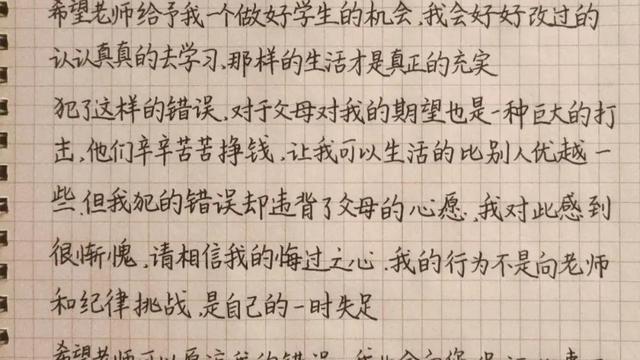 希望老师给予我一个做好学生的机会，我会好好改过的
认认真真的去学习，那样的生活才是真正的充实
犯了这样的错误，对于父母对我的期望也是一种巨大的打
击，他们辛辛苦苦挣钱，让我可以生活的比别人优越一
些，但我犯的错误却违背了父母的心愿，我对此感到
很惭愧，请相信我的悔过之心，我的行为不是向老师
和纪律挑战，是自己的一时失足
希望老师可以原谅我的错误，我